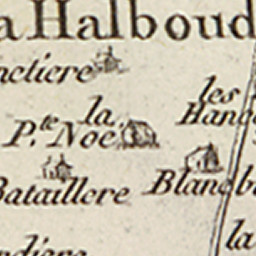 a Halboud
nctiere
les
Hang
la
P.te Noe
Bataillere
Blanc b
la
ndiere